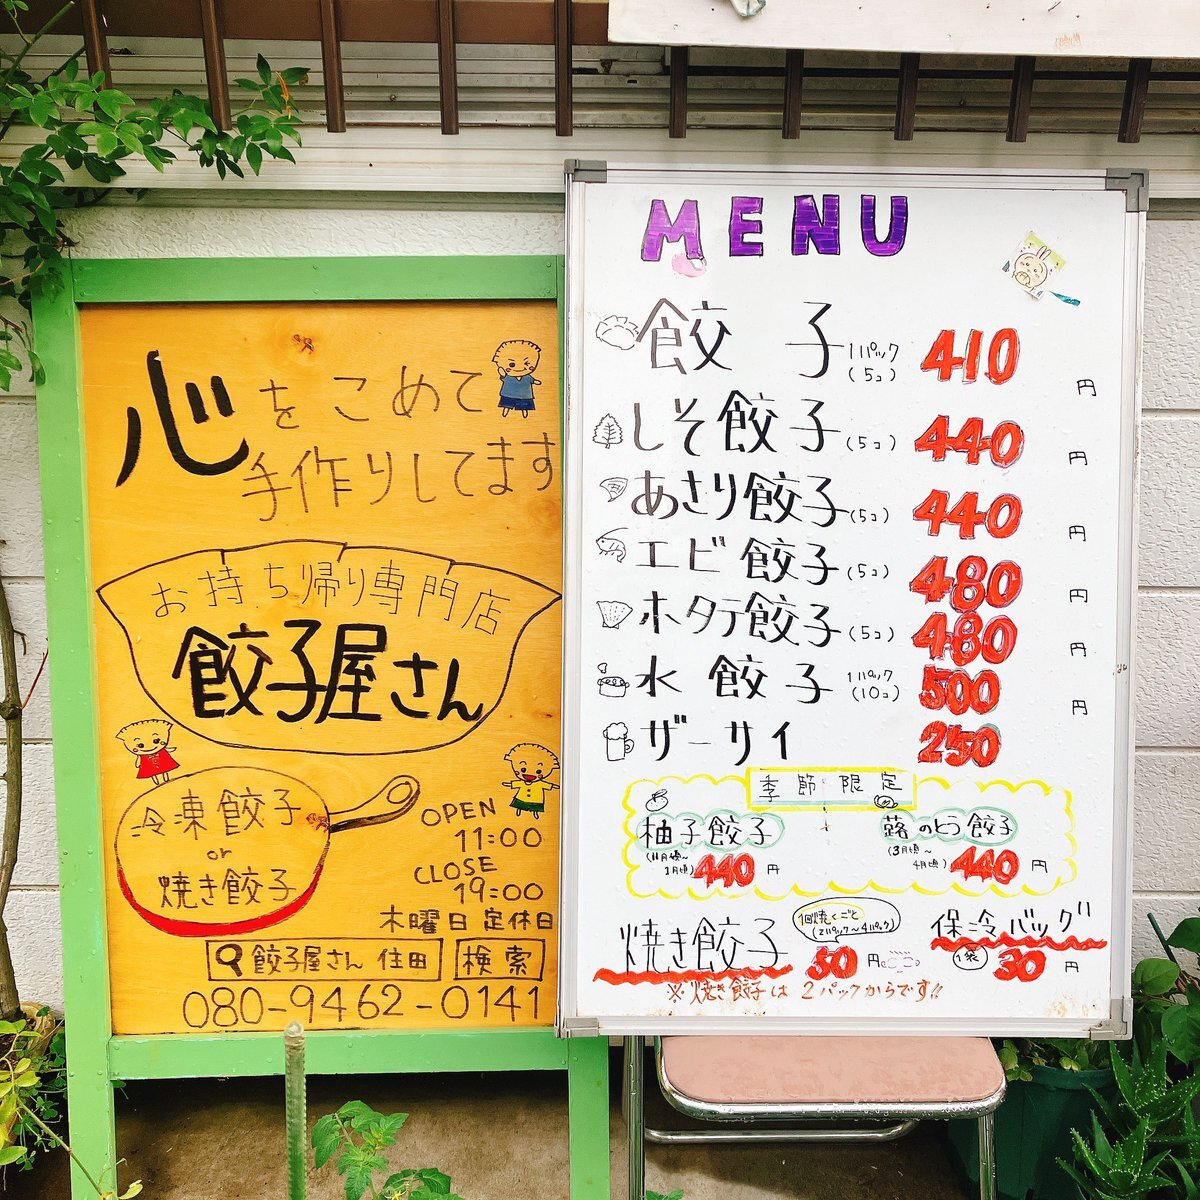 心をこめて
手作りしてます
お持ち帰り専門店
餃子屋さん
冷凍餃子
or
焼き餃子
OPEN
11:00
CLOSE
19:00
木曜日 定休日
餃子屋さん 住田 検索
080-9462-0141
MENU
餃子 1パック(5コ) 410円
しそ餃子(5コ) 440円
あさり餃子(5コ) 440円
エビ餃子(5コ) 480円
ホタテ餃子(5コ) 480円
水餃子 1パック(10コ) 500円
ザーサイ 250
季節限定
柚子餃子
(11月頃~1月頃) 440円
蕗のとう餃子
(3月頃~4月頃) 440円
焼き餃子 1回焼くごと(2パック~4パック) 50円
保冷バッグ 1袋 30円
※焼き餃子は2パックからです!!